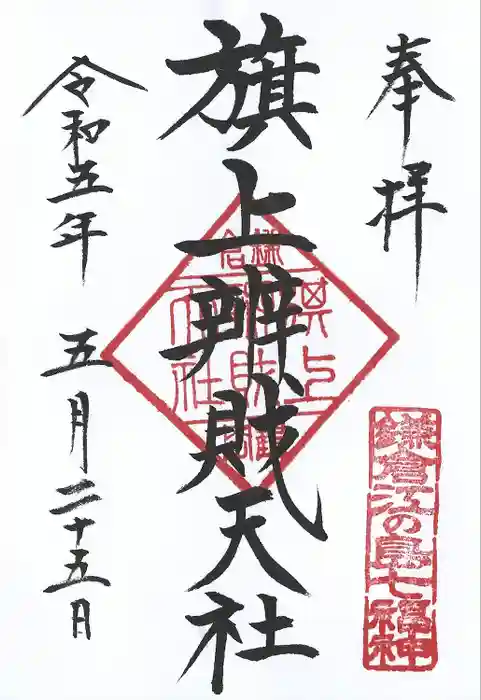 奉拝
鎌倉江の島七福神
旗上辨財天社
令和五年 五月二十五日